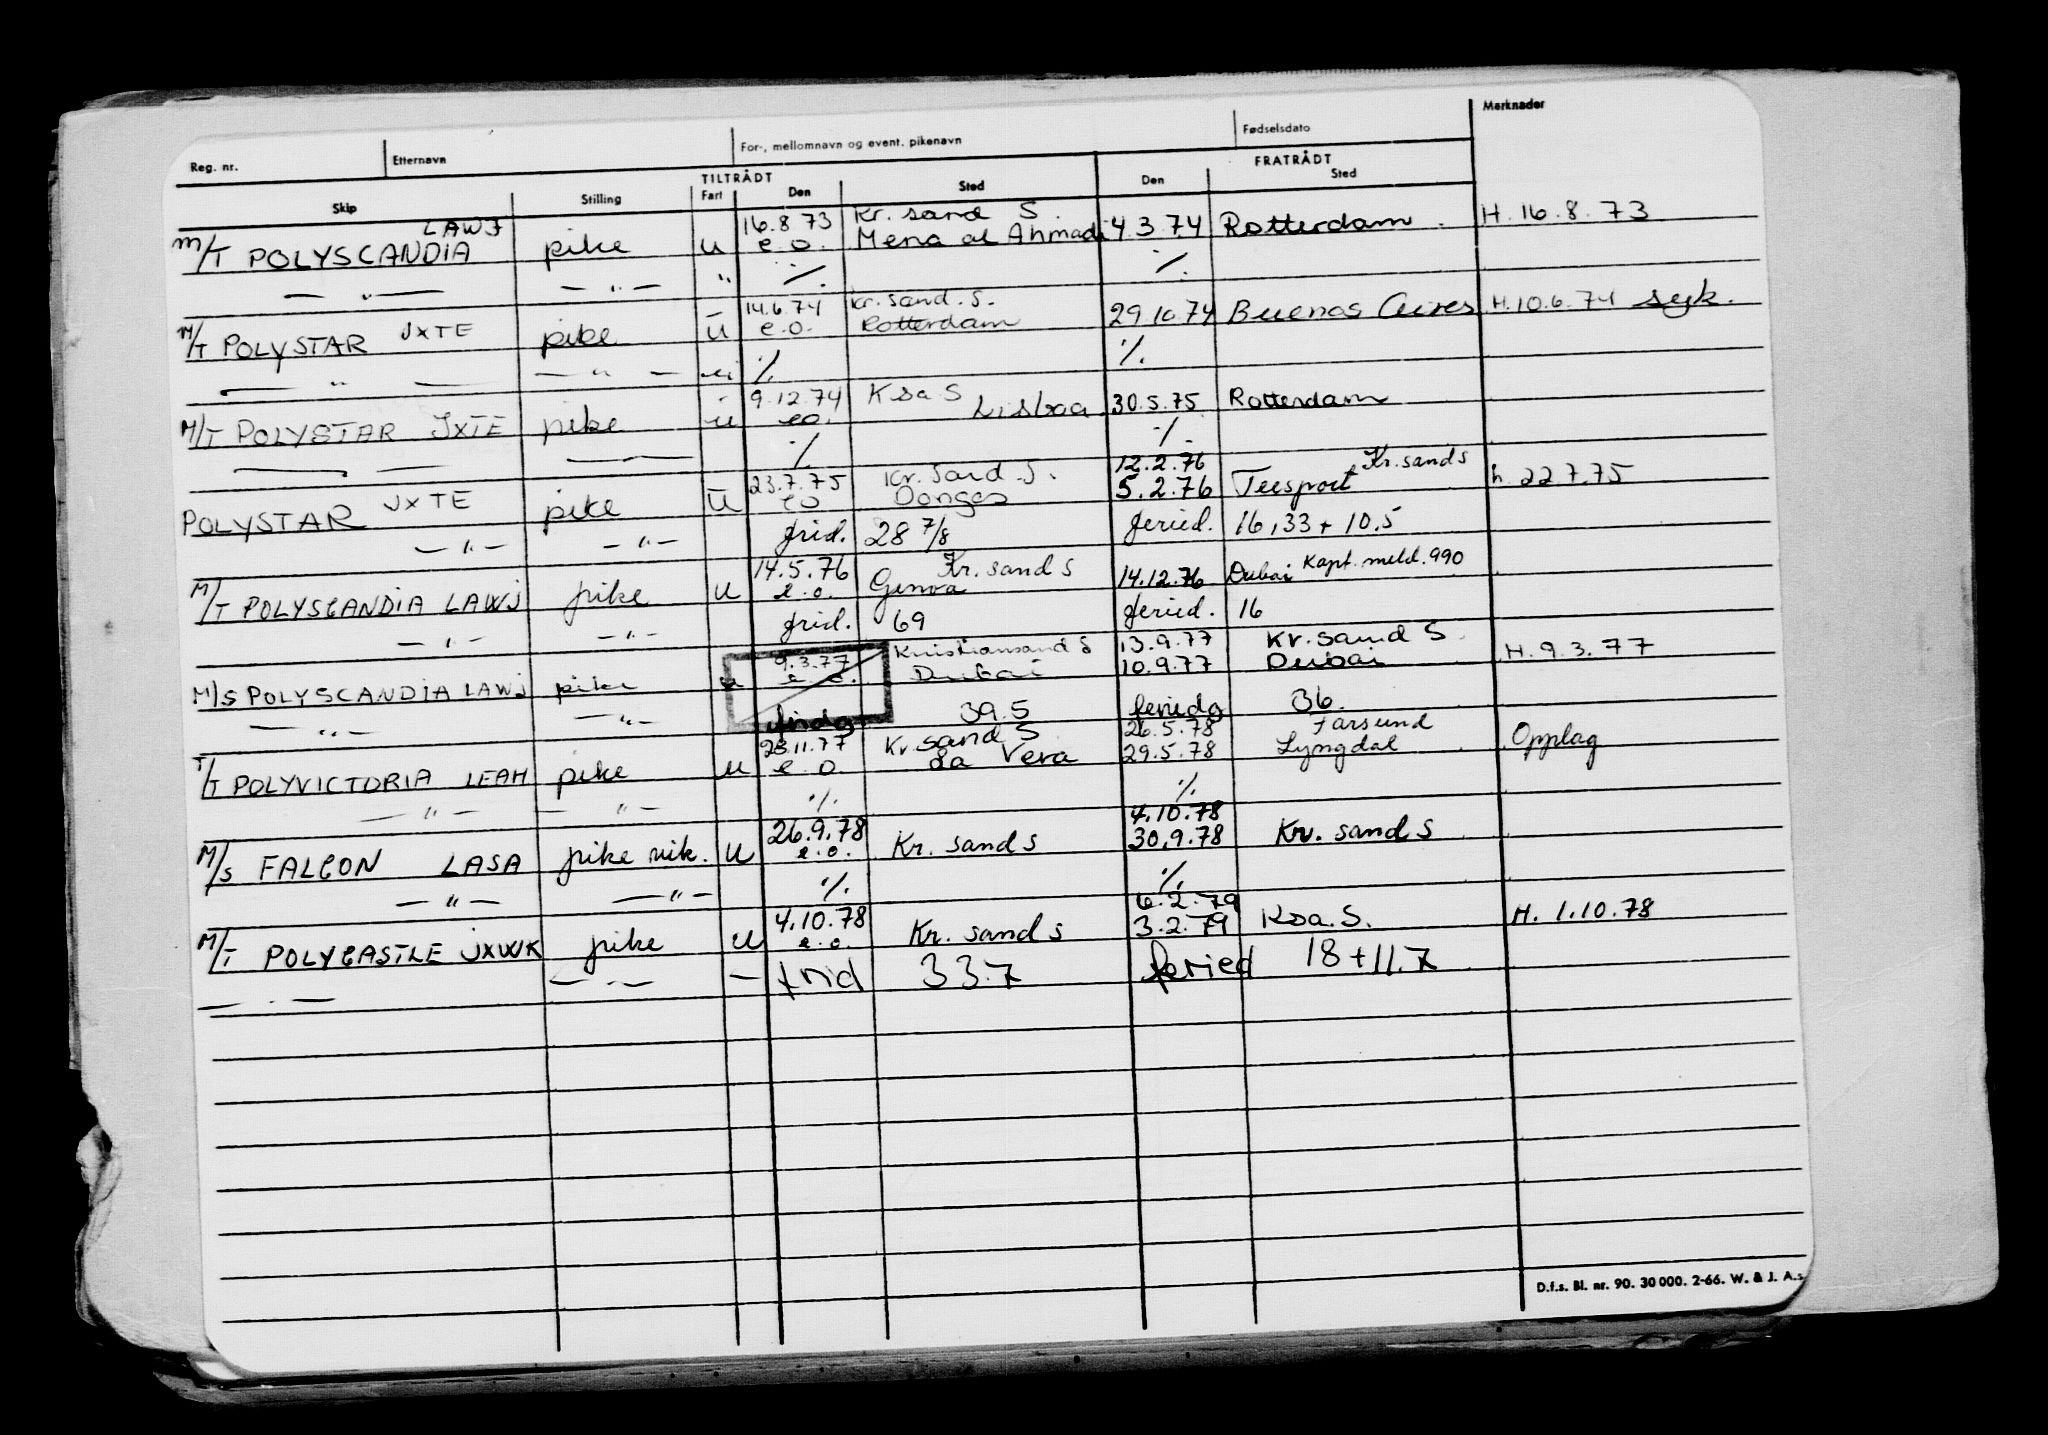 Reg. nr. Etternavn For-, mellomnavn og event. pikenavn Fødselsdato Merknader
TILTRÅDT FRATRÅDT
Skip Stilling Fart Den Sted Den Sted
LAWJ 16.8.73 Kr. sand S.
M/T POLYSCANDIA pike u e.o. Mena al Ahmadi 4.3.74 Rotterdam. H. 16.8.73
— " — — " — " % %
14.6.74 Kr. sand. S.
M/T POLYSTAR JXTE pike u e.o. Rotterdam 29.10.74 Buenos Aires H. 10.6.74 syk.
— " — — " — % %
9.12.74 Ksa S
M/T POLYSTAR JXTE pike u eo. Lisboa 30.5.75 Rotterdam
% %
23.7.75 Kr. Sand. S. 12.2.76 Kr. sand S
POLYSTAR JXTE pike U eo Donges 5.2.76 Teesport h. 22.7.75
— " — — " — frid. 28 7/8 feried. 16,33 + 10.5
14.5.76 Kr. sand S
M/T POLYSCANDIA LAWJ pike u e.o. Genoa 14.12.76 Dubai Kapt. meld. 990
— " — — " — frid. 69 feried. 16
9.3.77 Kristiansand S 13.9.77 Kr. sand S
M/S POLYSCANDIA LAWJ pike u e.o. Dubai 10.9.77 Dubai H. 9.3.77
— " — — " — fridg 39.5 feriedg 36.
23.11.77 Kr. sand S 26.5.78 Farsund
T/T POLYVICTORIA LEAH pike u e.o. La Vera 29.5.78 Lyngdal Opplag
— " — — " — % %
26.9.78 4.10.78
M/S FALCON LASA pike vik. U e.o. Kr. sand S 30.9.78 Kr. sand S
— " — — " — % %
4.10.78 6.2.79
M/T POLYCASTLE JXWK pike u e.o. Kr. sand S 3.2.79 Ksa. S. H. 1.10.78
— " — — " — — frid 33.7 feried 18+11.7
D.f.s. Bl. nr. 90. 30 000. 2-66. W. & J. A.s